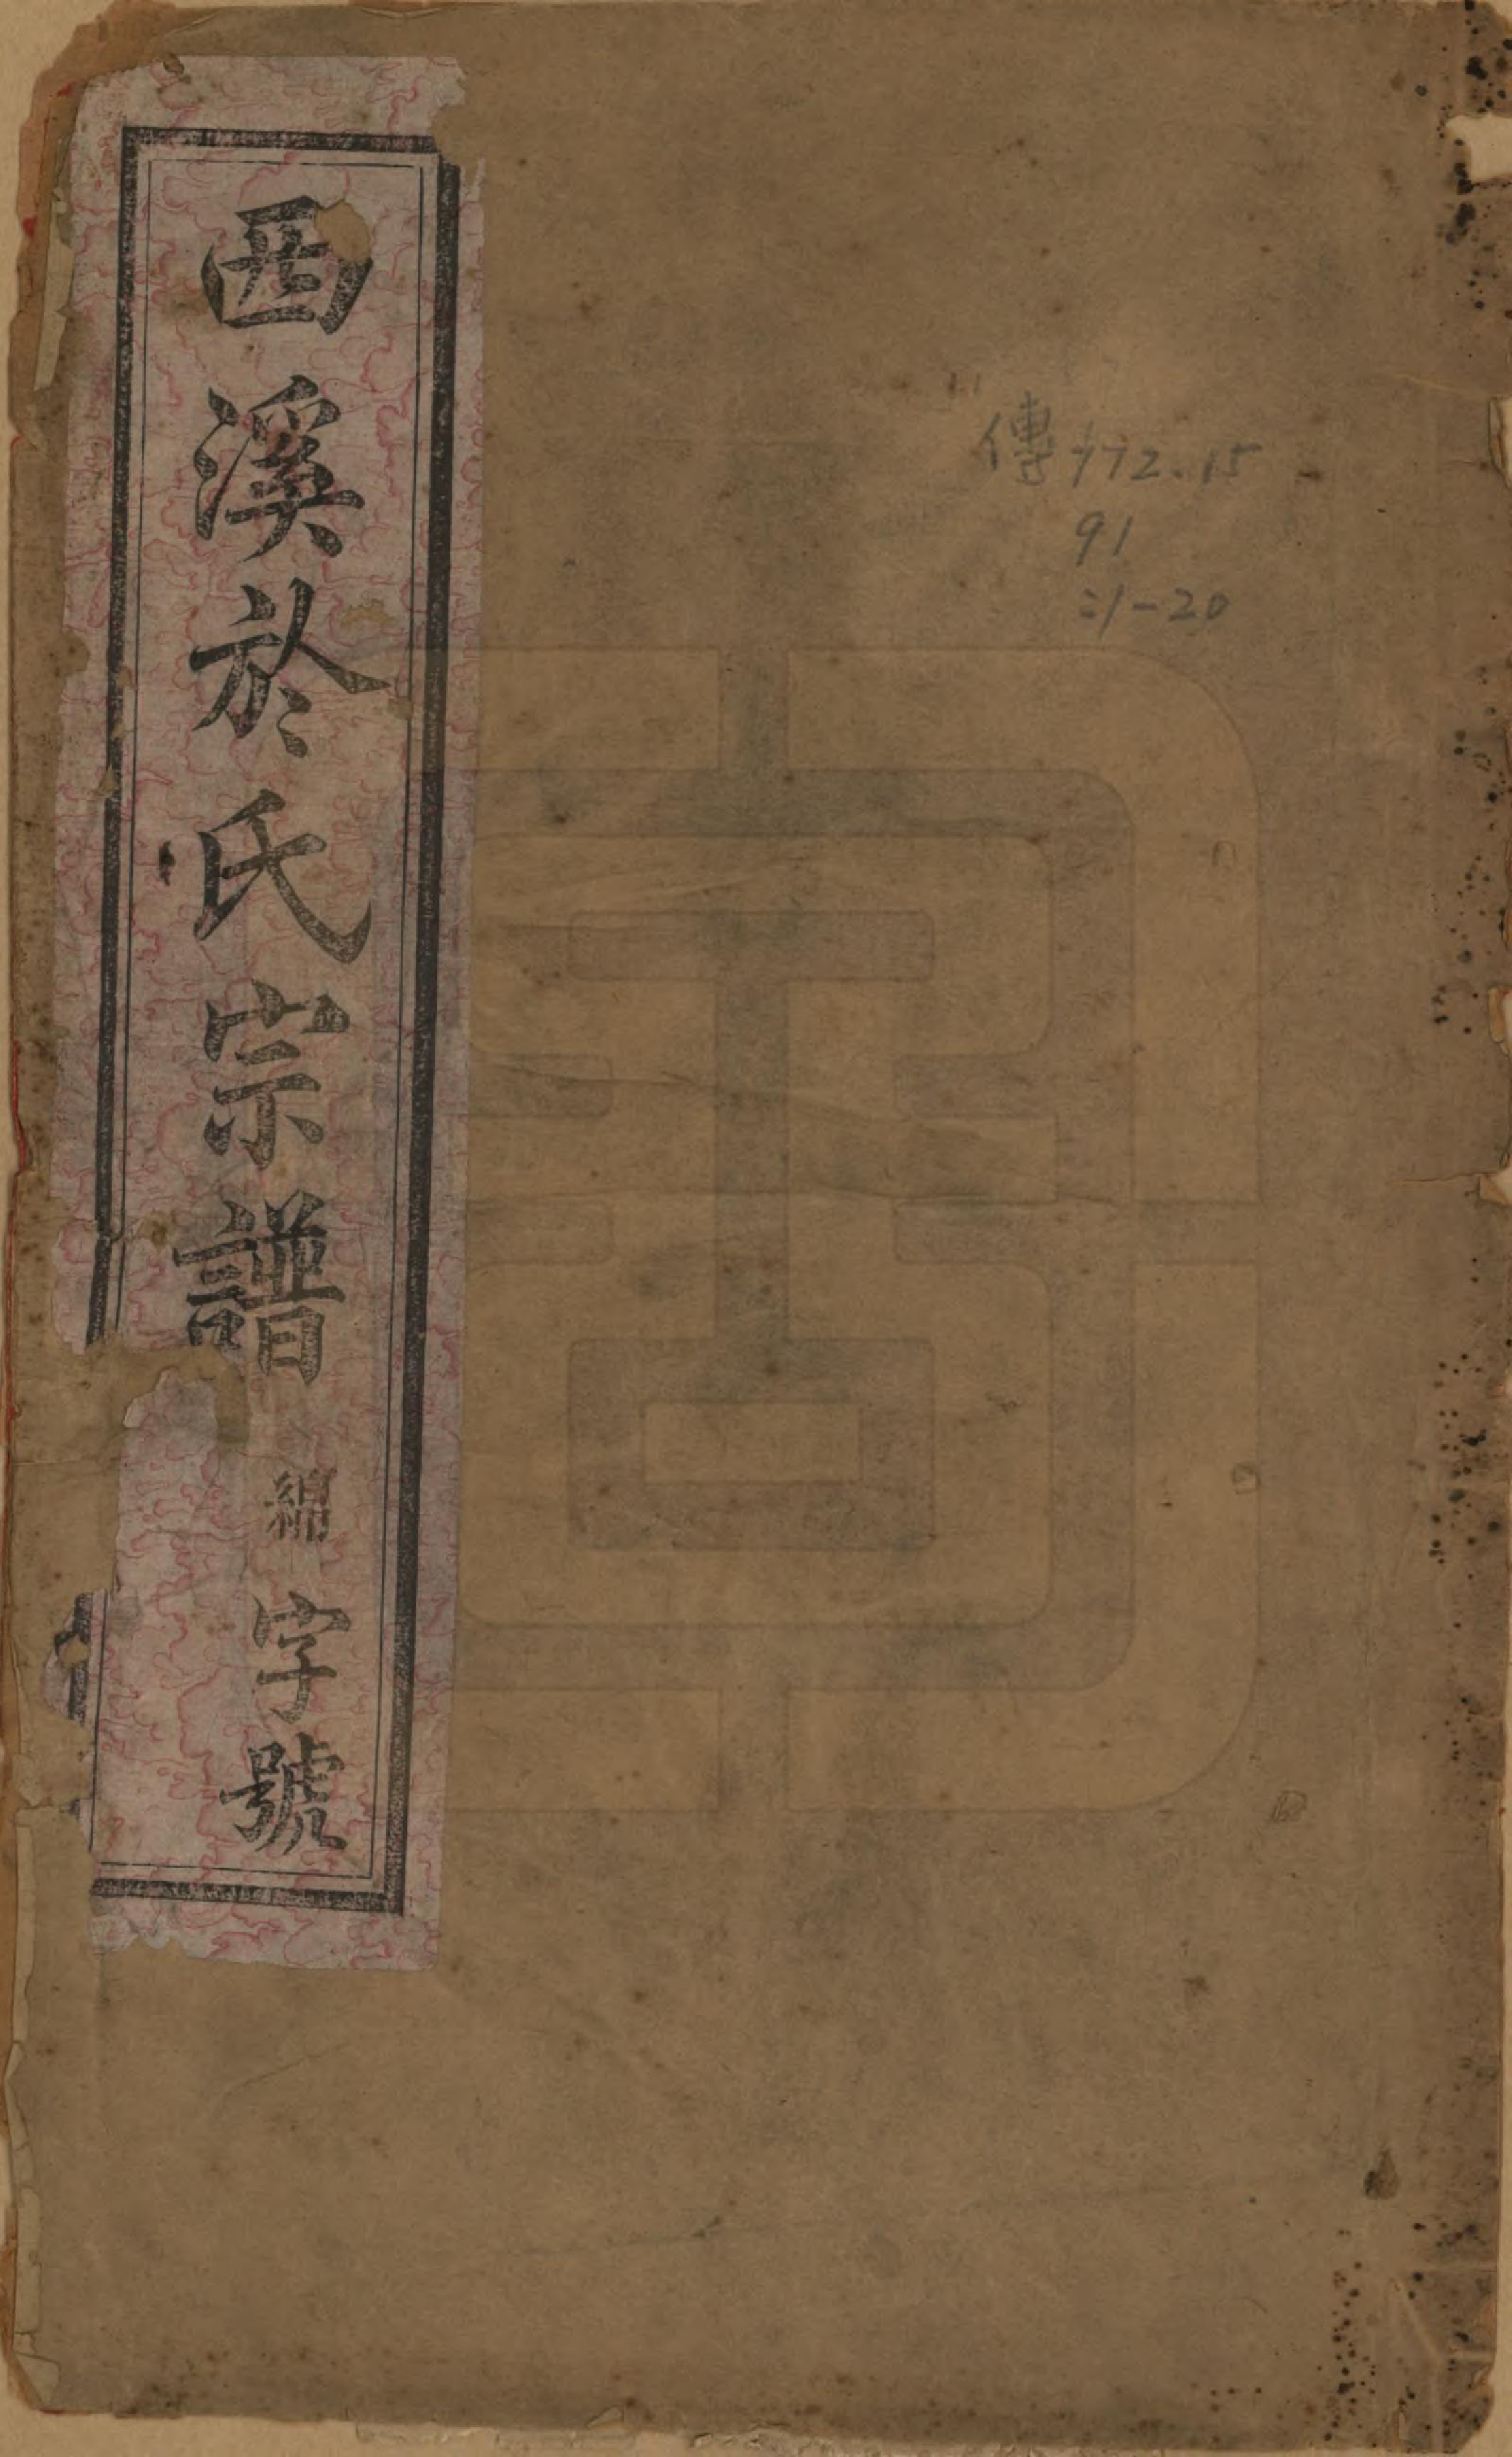 西溪於氏宗譜 綿字號
傳772.15
91
:1-20